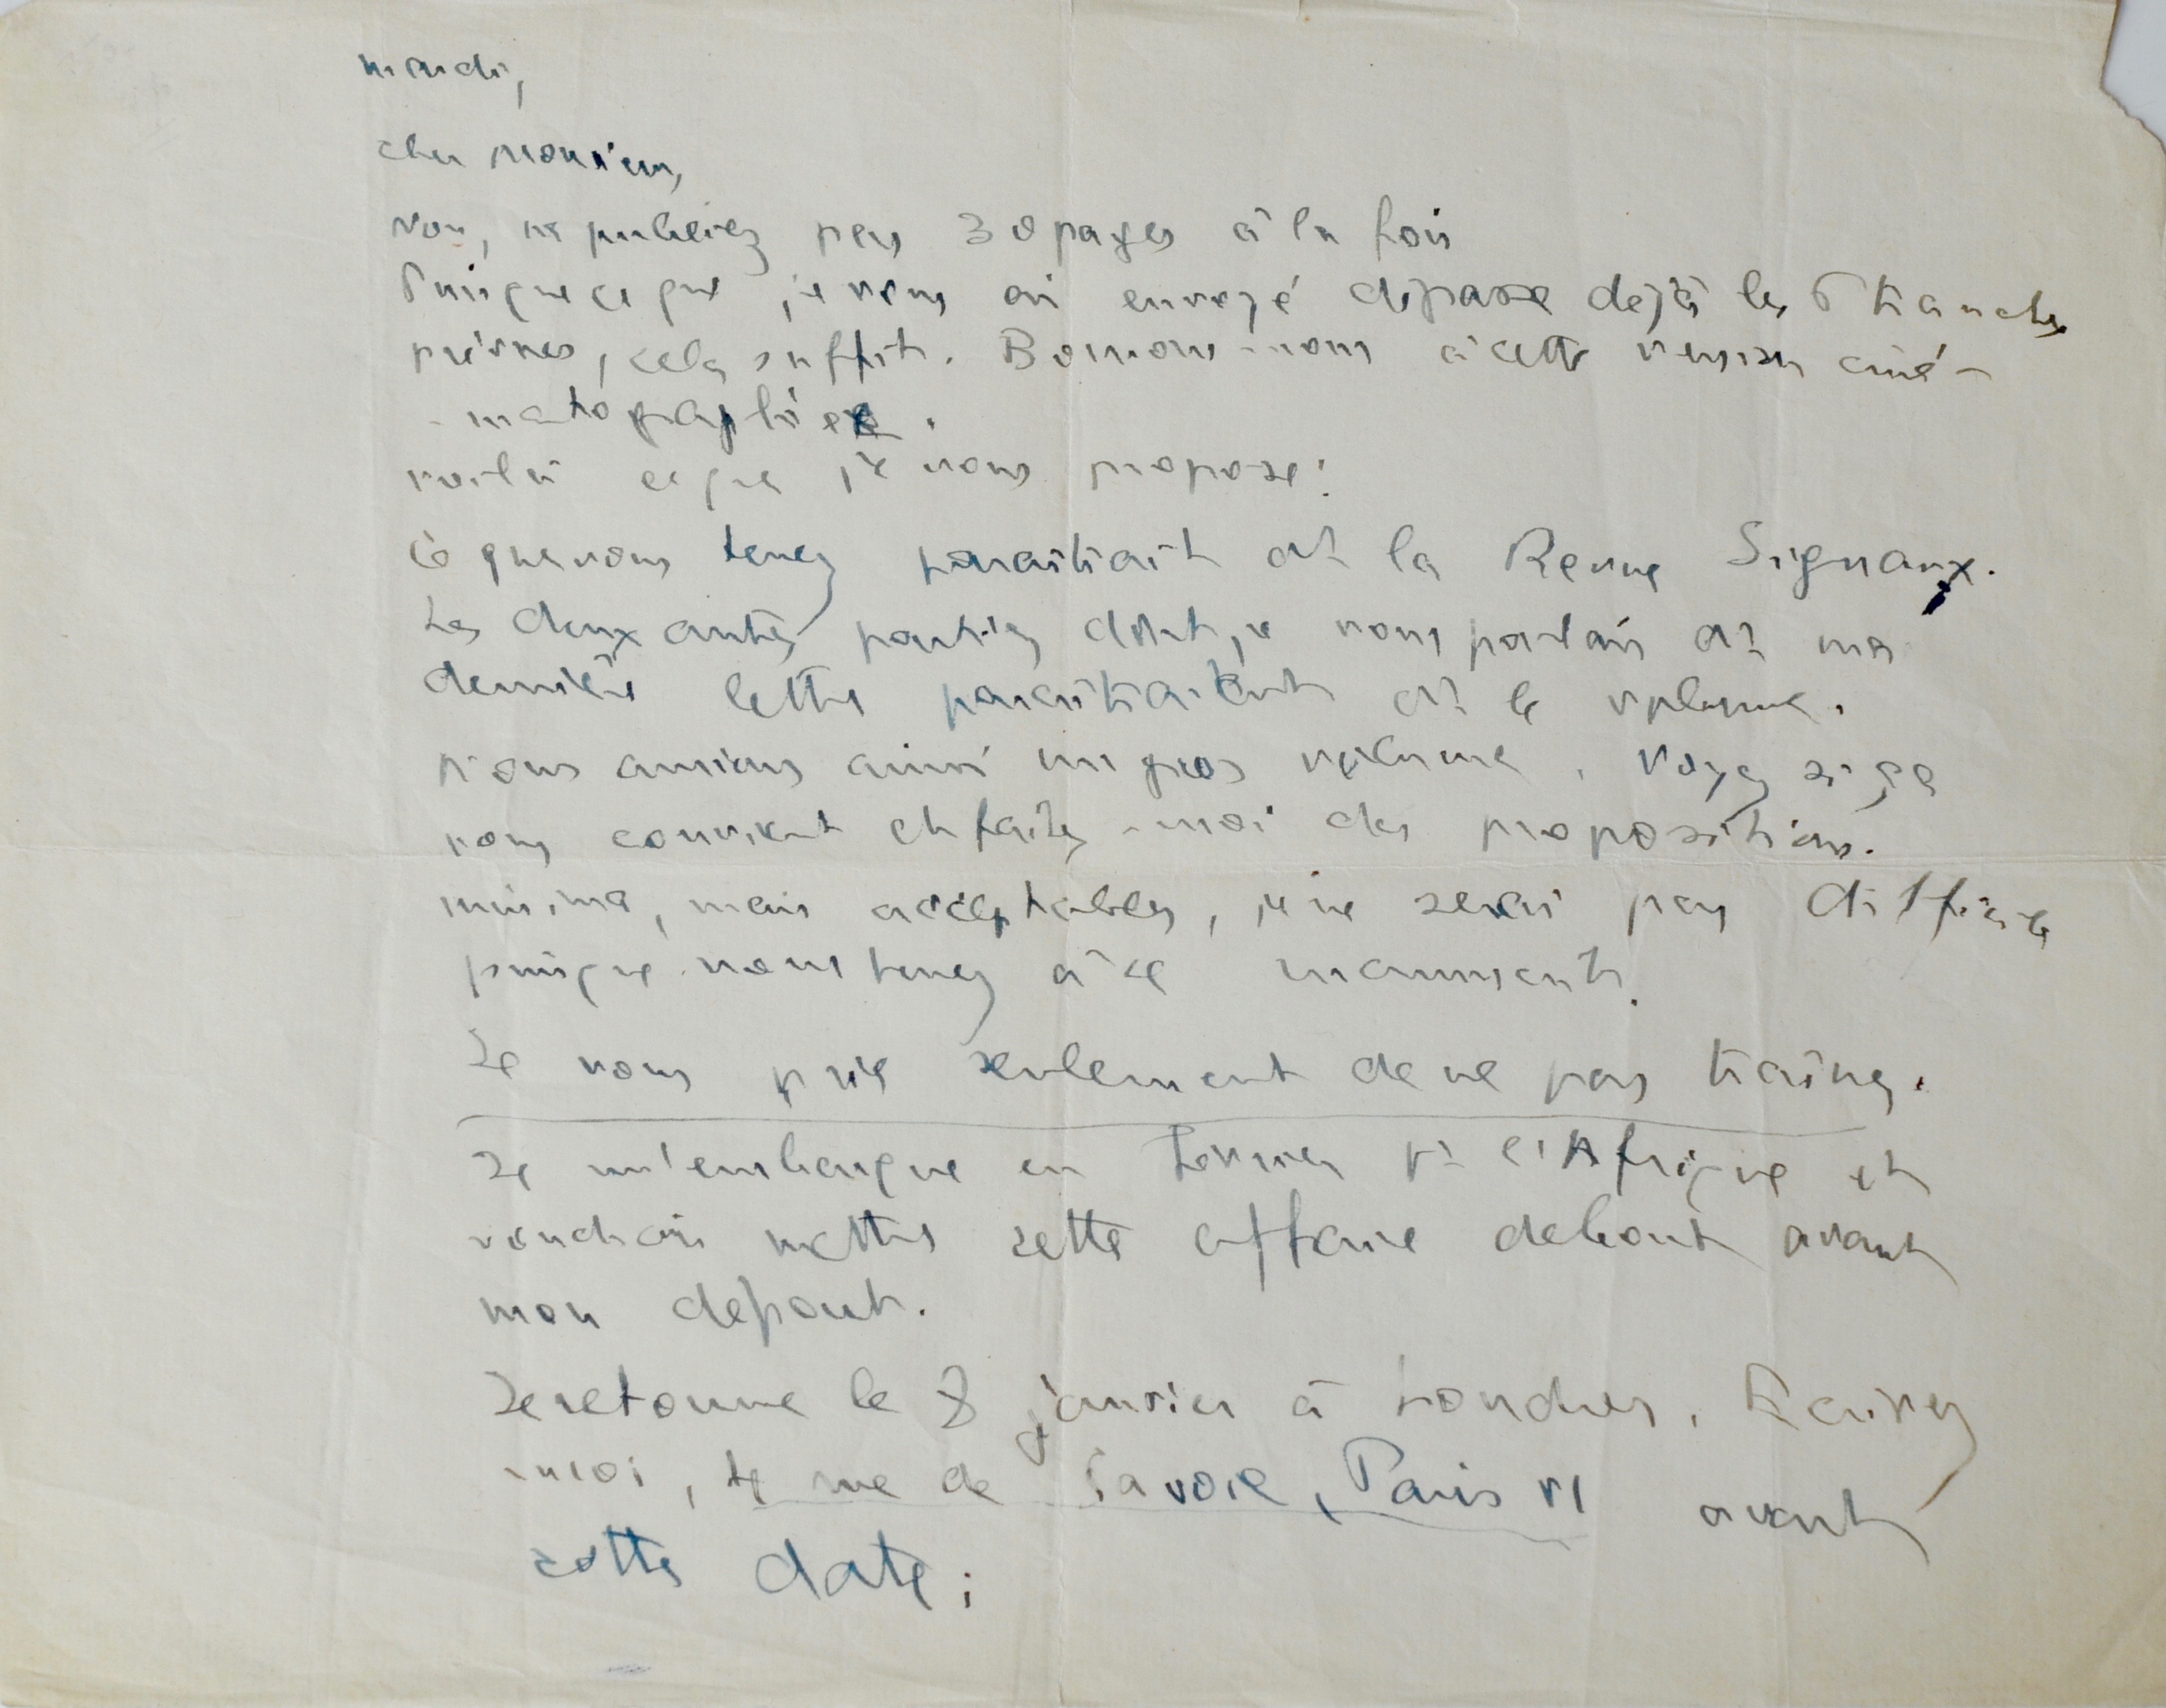 mardi,
cher monsieur,
Non, ne publiez pas 30 pages à la fois
Puisque ce que je vous ai envoyé dépasse déjà les tranches
prévues, cela suffit. Bornons-nous à cette version ciné-
-matographiée.
voilà ce que je vous propose:
Ce que vous tenez paraîtrait ds la Revue Signaux.
Les deux autres parties dont je vous parlais ds ma
dernière lettre paraîtraient ds le volume.
Nous aurions ainsi un gros volume. Voyez si ça
vous convient et faites-moi des propositions.
minima, mais acceptables, je ne serai pas difficile
puisque vous tenez à ce manuscrit.
Je vous prie seulement de ne pas traîner.
Je m'embarque en février pr l'Afrique et
voudrais mettre cette affaire debout avant
mon départ.
Je retourne le 8 janvier à Londres. Ecrivez
-moi, 4 rue de Savoie, Paris VI avant
cette date;